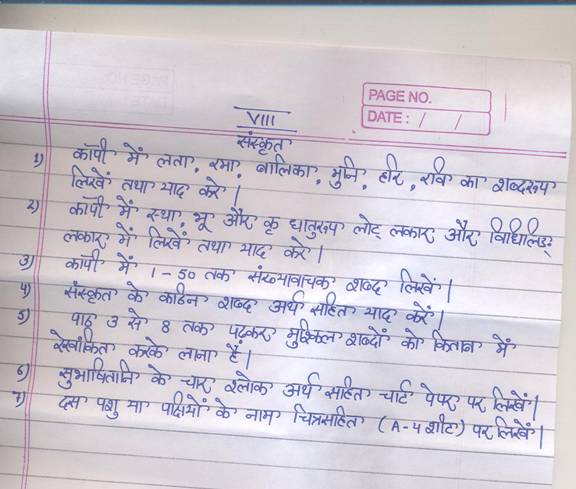 PAGE NO.
DATE: / /
VIII
संस्कृत
1) कॉपी में लता, रमा, बालिका, मुनि, हरि, रवि का शब्दरूप
लिखें तथा याद करें।
2) कॉपी में स्था, भू और कृ धातुरूप लोट् लकार और विधिलिङ्
लकार में लिखें तथा याद करें।
3) कॉपी में 1-50 तक संख्यावाचक शब्द लिखें।
4) संस्कृत के कठिन शब्द अर्थ सहित याद करें।
5) पाठ 3 से 8 तक पढ़कर मुश्किल शब्दों को किताब में
रेखांकित करके लाना है।
6) सुभाषितानि के चार श्लोक अर्थ सहित चार्ट पेपर पर लिखें।
7) दस पशु या पक्षियों के नाम चित्रसहित (A-4 शीट) पर लिखें।